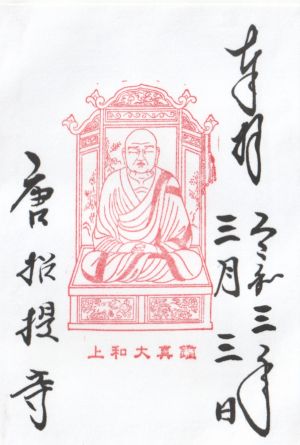 奉拝
令和三年
三月三日
上和大真鑑
唐招提寺